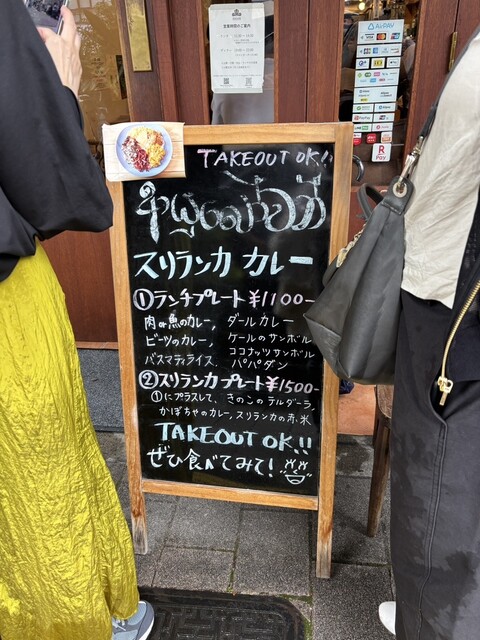 TAKEOUT OK!!
スリランカ カレー
①ランチプレート ¥1100-
肉or魚のカレー, ダールカレー
ビーツのカレー, ケールのサンボル
ココナッツサンボル
バスマティライス パパダン
②スリランカプレート ¥1500-
①にプラスして、きのこのテルダーラ,
かぼちゃのカレー, スリランカの赤米
TAKEOUT OK!!
ぜひ食べてみて!
AirPAY
R
Pay